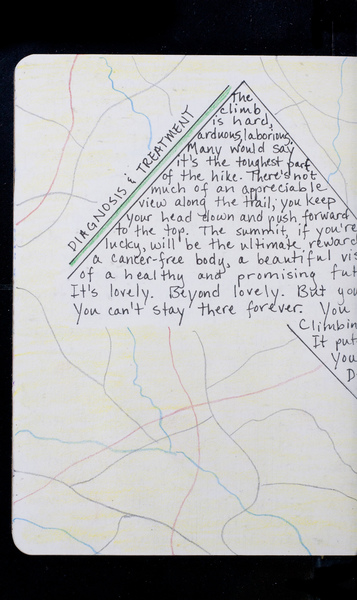 DIAGNOSIS & TREATMENT
The
climb
is hard,
arduous, laborious.
Many would say
it's the toughest part
of the hike. There's not
much of an appreciable
view along the trail; you keep
your head down and push forward
to the top. The summit, if you're
lucky, will be the ultimate reward
a cancer-free body, a beautiful
of a healthy and promising
It's lovely. Beyond lovely. But
You can't stay there forever. You
Climbin
It put
You